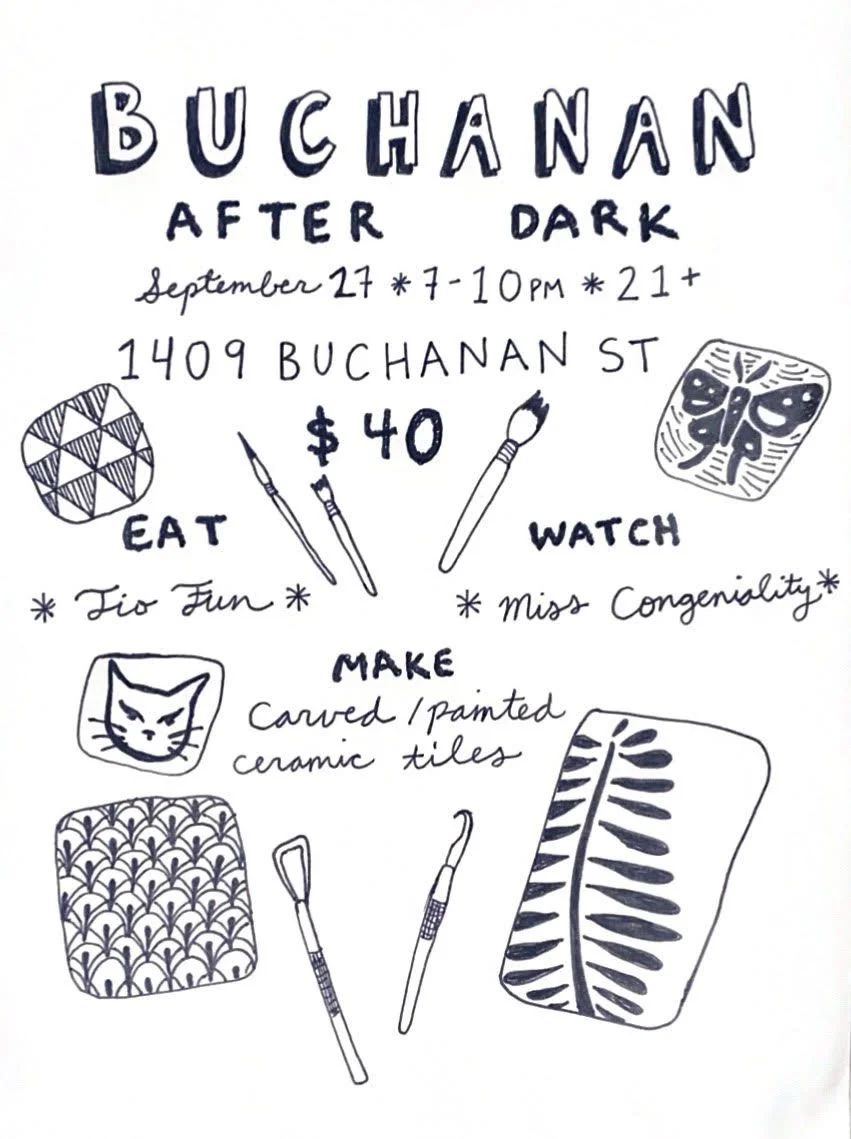 BUCHANAN
AFTER DARK
September 27 * 7-10PM * 21+
1409 BUCHANAN ST
$40
EAT
* Tio Fun *
WATCH
* Miss Congeniality *
MAKE
Carved / painted
ceramic tiles